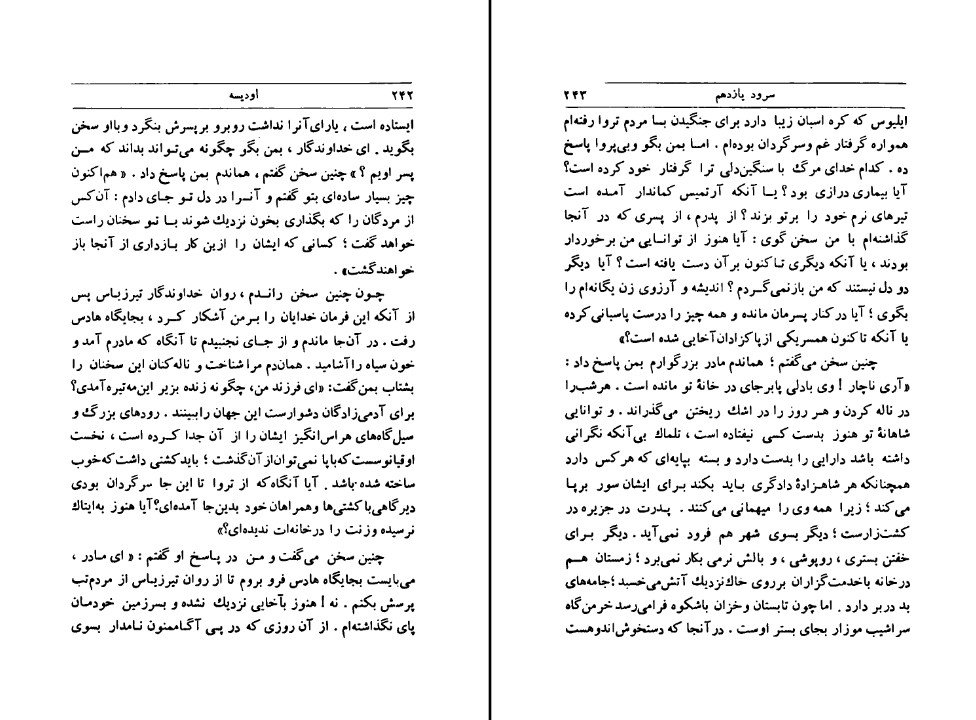 ۲۴۲ اودیسه
ایستاده است ، یارای آنرا نداشت روبرو برپسرش بنگرد وبااو سخن
بگوید . ای خداوندگار ، بمن بگو چگونه می‌تواند بداند که من
پسر اویم ؟ » چنین سخن گفتم ، هماندم بمن پاسخ داد . « هم‌اکنون
چیز بسیار ساده‌ای بتو گفتم و آنرا در دل تو جای دادم : آن‌کس
از مردگان را که بگذاری بخون نزدیك شوند با تو سخنان راست
خواهد گفت ؛ کسانی که ایشان را ازین کار بازداری از آنجا باز
خواهندگشت» .
چون چنین سخن راندم ، روان خداوندگار تیرزیاس پس
از آنکه این فرمان خدایان را برمن آشکار کرد ، بجایگاه هادس
رفت . در آن‌جا ماندم و از جای نجنبیدم تا آنگاه که مادرم آمد و
خون سیاه راآشامید . همان‌دم مراشناخت و ناله‌کنان این سخنان را
بشتاب بمن‌گفت: «ای فرزند من، چگونه زنده بزیر این‌مه‌تیره‌آمدی؟
برای آدمی‌زادگان دشوارست این جهان راببینند . رودهای بزرگ و
سیل‌گاه‌های هراس‌انگیز ایشان را از آن جدا کرده است ، نخست
اوقیانوسست که‌باپا نمی‌توان‌ازآن‌گذشت ؛ بایدکشتی داشت‌که‌خوب
ساخته شده‌باشد . آیا آنگاه‌که از تروا تا این جا سرگردان بودی
دیرگاهی‌باکشتی‌ها وهمراهان خود بدین‌جا آمده‌ای؟آیا هنوز به‌ایتاك
نرسیده وزنت را درخانه‌ات ندیده‌ای؟»
چنین سخن می‌گفت و من در پاسخ او گفتم : « ای مادر ،
می‌بایست بجایگاه هادس فرو بروم تا از روان تیرزیاس از مردم‌تب
پرسش بکنم . نه ! هنوز بآخایی نزدیك نشده و بسرزمین خودمان
پای نگذاشته‌ام . از آن روزی که در پی آگاممنون نامدار بسوی
سرود یازدهم ۲۴۳
ایلیوس که کره اسبان زیبا دارد برای جنگیدن با مردم تروا رفته‌ام
همواره گرفتار غم وسرگردان بوده‌ام . اما بمن بگو وبی‌پروا پاسخ
ده . کدام خدای مرگ با سنگین‌دلی ترا گرفتار خود کرده است؟
آیا بیماری درازی بود ؟ یا آنکه آرتمیس کماندار آمده است
تیرهای نرم خود را برتو بزند ؟ از پدرم ، از پسری که در آنجا
گذاشته‌ام با من سخن گوی : آیا هنوز از توانایی من برخوردار
بودند ، یا آنکه دیگری تاکنون برآن دست یافته است ؟ آیا دیگر
دو دل نیستند که من بازنمی‌گردم ؟ اندیشه و آرزوی زن یگانه‌ام را
بگوی ؛ آیا درکنار پسرمان مانده و همه چیز را درست پاسبانی‌کرده
یا آنکه تاکنون همسریکی ازپاکزادان‌آخایی شده است؟»
چنین سخن می‌گفتم ؛ هماندم مادر بزرگوارم بمن پاسخ داد :
«آری ناچار ! وی بادلی پابرجای در خانهٔ تو مانده است . هرشب‌را
در ناله کردن و هر روز را در اشك ریختن می‌گذراند . و توانایی
شاهانهٔ تو هنوز بدست کسی نیفتاده است ، تلماك بی‌آنکه نگرانی
داشته باشد دارایی را بدست دارد و بسته بپایه‌ای که هرکس دارد
همچنانکه هر شاهزادهٔ دادگری باید بکند برای ایشان سور برپا
می‌کند ؛ زیرا همه وی را میهمانی می‌کنند . پدرت در جزیره در
کشت‌زارست ؛ دیگر بسوی شهر هم فرود نمی‌آید . دیگر برای
خفتن بستری ، روپوشی ، و بالش نرمی بکار نمی‌برد ؛ زمستان هم
درخانه باخدمت‌گزاران برروی خاك‌نزدیك آتش‌می‌خسبد ؛جامه‌های
بد دربر دارد . اماچون تابستان وخزان باشکوه فرامی‌رسد خرمن‌گاه
سراشیب موزار بجای بستر اوست . درآنجا که دستخوش‌اندوهست